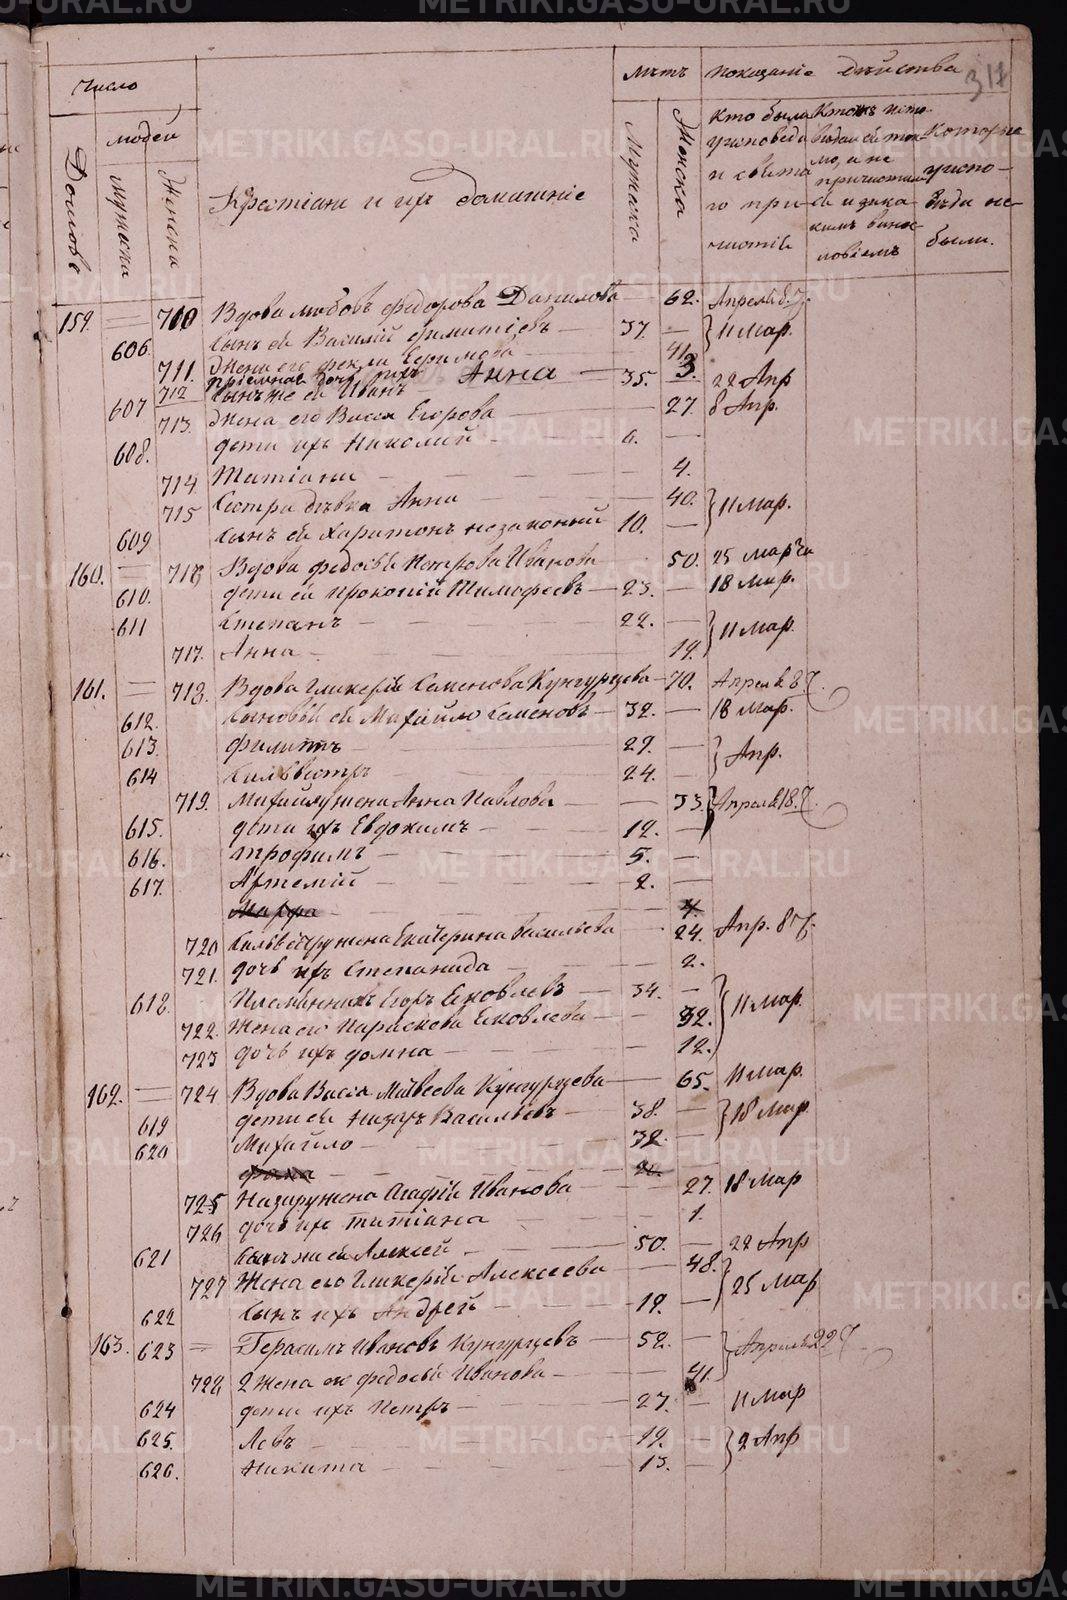 317
Число
Лѣтъ Показаніе дѣйства
людей
Домовъ
Мужска
Женска
Крестіани и ихъ домашніе
Мужска
Женска
Кто были у исповеди и свята го при чистіѣ
были.
159. — 710 Вдова Любовь Федорова Данилова — 62. Апреля 8.
606. Сынъ ея Василій — 37. — 11 Мар.
711. Жена его Фекла — 41.
712 приемная дочь ихъ Анна — 3.
607 Сынъ же ея Иванъ 35. — 22 Апр
713. Жена его Васса Егорова — 27. 8 Апр.
608. дети ихъ Николай — 6. —
714 Татіана — 4.
715 Сестра девка Анна — 40. 11 Мар.
609 Сынъ ея Харитонъ незаконный 10. —
160. — 716 Вдова Федосья Петрова Иванова 50. 25 Марта
610. дети ея Прокопій Тимофеевъ — 23. — 18 Мар.
611 Степанъ — 22. — 11 Мар.
717. Анна — 19.
161. — 718. Вдова Гликерія Семенова Кунгурцева — 70. Апреля 8
612. Сыновья ея Михайло Семеновъ — 32. — 18 Мар.
613. Филиппъ — 29. — Апр.
614 Сильвестръ — 24. —
719. Михайлу жена Анна Павлова — 33. Апреля 18.
615. дети ихъ Евдокимъ — 12. —
616. Трофимъ — 5. —
617. Артемій — 2. —
Марфа — 4.
720 Сильвестру жена Екатерина Васильева — 24. Апр. 8
721. дочь ихъ Степанида — 2.
618. Племянникъ Егоръ Яковлевъ — 34. — 11 Мар.
722. Жена его Параскова Яковлева — 32.
723 дочь ихъ Домна — 12.
162. — 724 Вдова Васса Матвеева Кунгурцева — 65. 11 Мар.
619 дети ея Назаръ Васильевъ — 38. — 18 Мар.
620 Михайло — 32. —
Фока —
725 Назару жена Агафія Иванова — 27. 18 Мар
726 дочь ихъ Татіана — 1.
621 Сынъ же ея Алексей — 50. — 22 Апр
727 Жена его Гликерія Алексеева — 48. 25 Мар
622 Сынъ ихъ Андрей — 19. —
163. 623 = Герасимъ Ивановъ Кунгурцевъ — 52. — Апреля 22
728 2 жена его Федосья Иванова — 41.
624 дети ихъ Петръ — 27. — 11 Мар
625. Левъ — 19. — 2 Апр
626. Никита — 13. —
METRIKI.GASO-URAL.RU